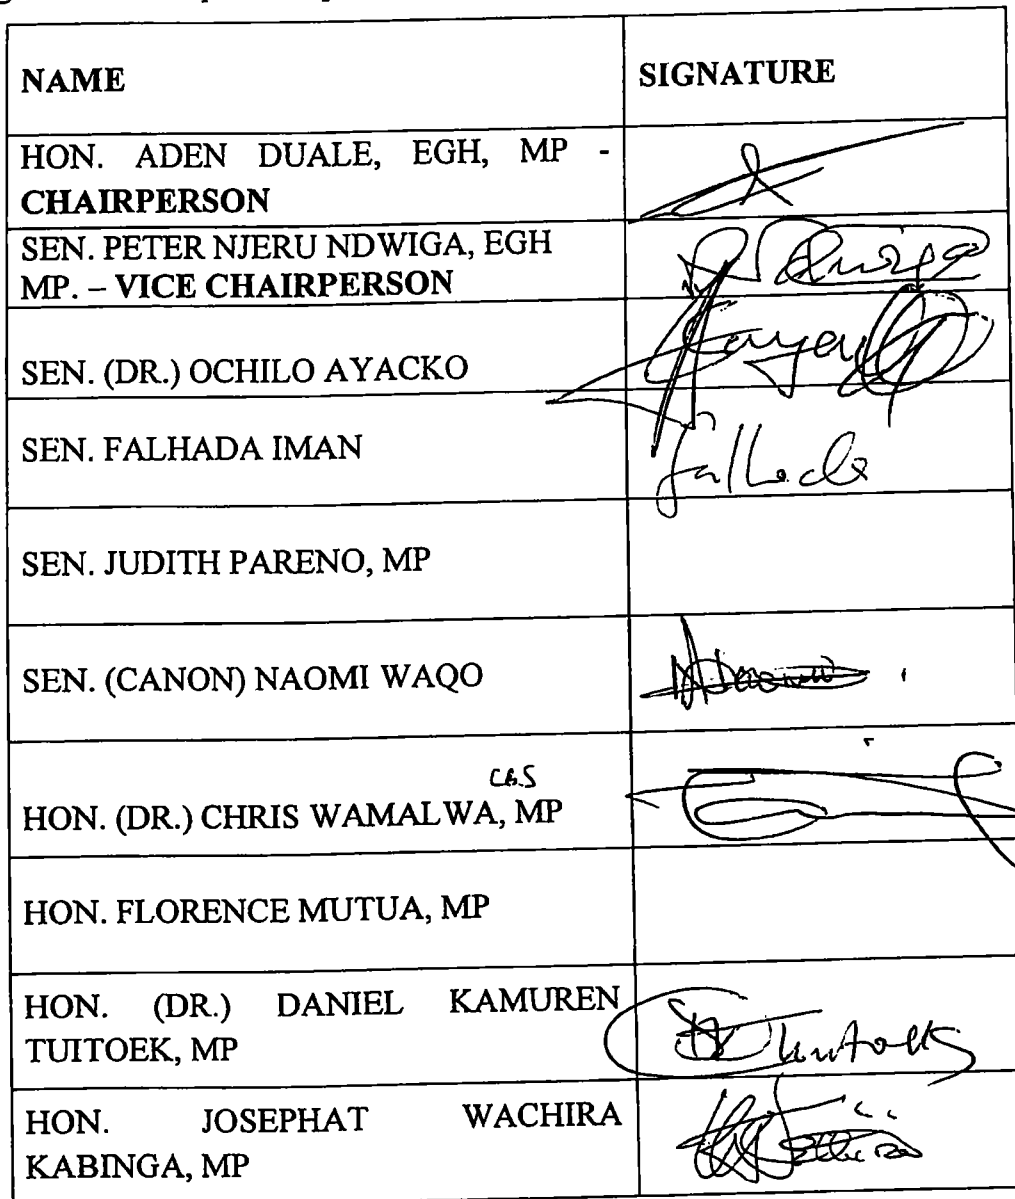 NAME
SIGNATURE
HON. ADEN DUALE, EGH, MP -
CHAIRPERSON
SEN. PETER NJERU NDWIGA, EGH
MP. – VICE CHAIRPERSON
SEN. (DR.) OCHILO AYACKO
SEN. FALHADA IMAN
SEN. JUDITH PARENO, MP
SEN. (CANON) NAOMI WAQO
HON. (DR.) CHRIS WAMALWA, MP
HON. FLORENCE MUTUA, MP
HON. (DR.) DANIEL KAMUREN
TUITOEK, MP
HON. JOSEPHAT WACHIRA
KABINGA, MP